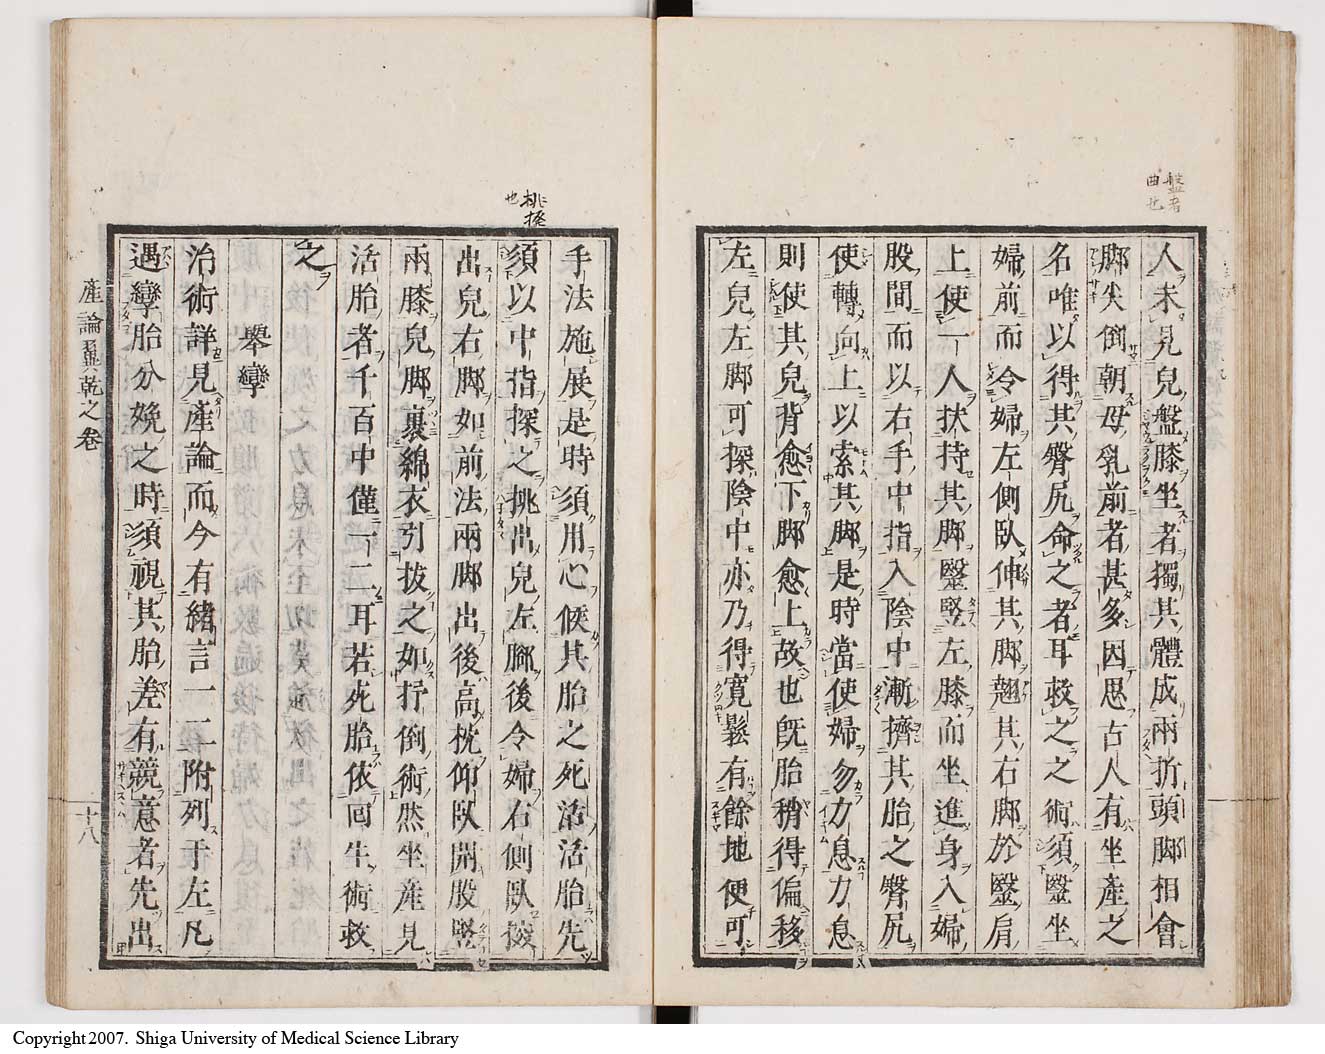 盤者
曲也
人未見兒盤膝坐者獨其體成兩折頭脚相會
脚尖倒朝母乳前者甚多因思古人有坐產之
名唯以得其臀尻命之者耳救之之術須毉坐
婦前而令婦左側臥伸其脚翹其右脚於毉肩
上使一人扶持其脚毉竪左膝而坐進身入婦
股間而以右手中指入陰中漸擠其胎之臀尻
使轉向上以索其脚是時當使婦勿力息力息
則使其兒背愈下脚愈上故也旣胎稍得偏移
左兒左脚可探陰中亦乃得寬鬆有餘地便可
挑撥
也
手法施展是時須用心候其胎之死活活胎先
須以中指探之挑出兒左脚後令婦右側臥
出兒右脚如前法兩脚出後高枕仰臥開股竪
兩膝兒脚裹綿衣引拔之如抒倒術然坐產見
活胎者千百中僅一二耳若死胎依回生術救
之
舉攣
治術詳見產論而今有緒言一二附列于左凡
遇攣胎分娩之時須視其胎差有競意者先出
產論翼乾之卷
十八
Copyright2007. Shiga University of Medical Science Library